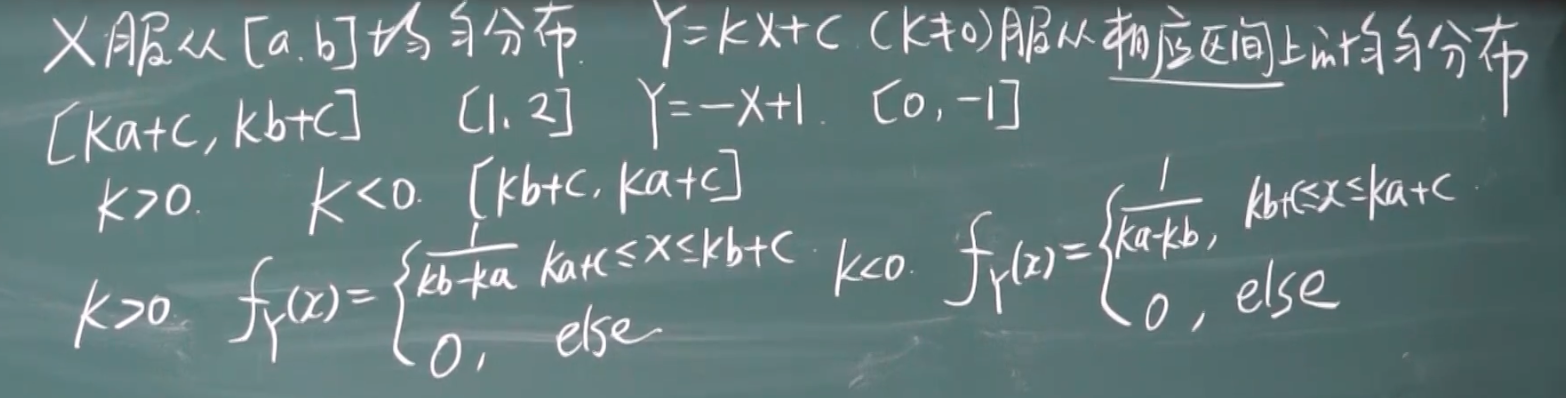 X服从[a,b]均匀分布. Y=kX+c (k≠0)服从相应区间上的均匀分布
[ka+c, kb+c] [1,2] Y=-X+1. [0,-1]
k>0. k<0. [kb+c, ka+c]
k>0 f_Y(x)={1/(kb-ka) ka+c≤x≤kb+c 0, else k<0. f_Y(x)={1/(ka-kb), kb+c≤x≤ka+c 0, else